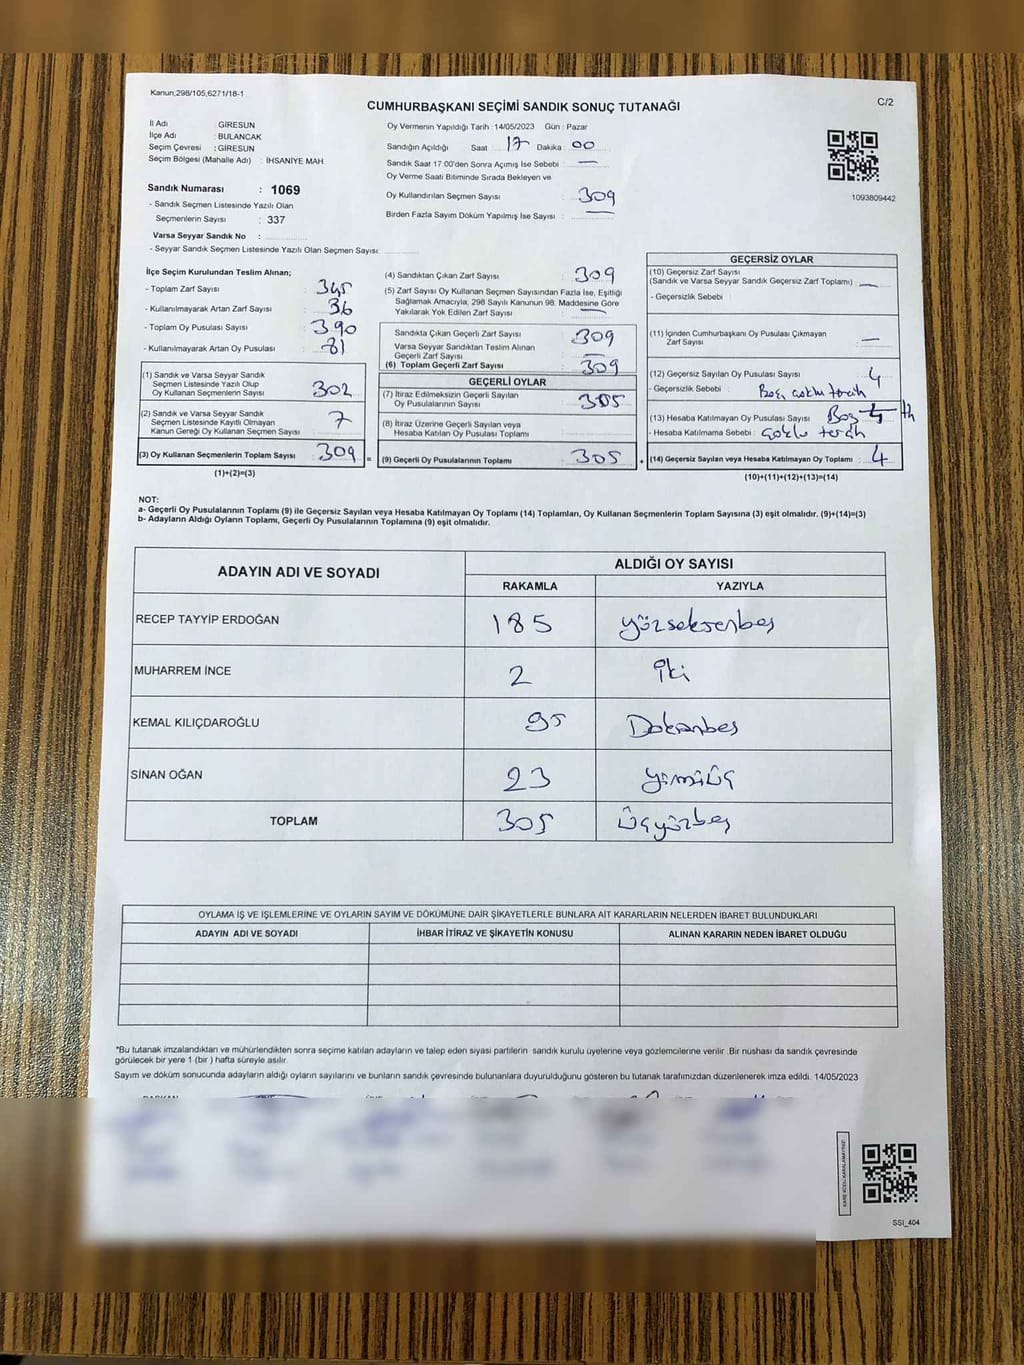 Kanun,298/105,6271/18-1
C/2
CUMHURBAŞKANI SEÇİMİ SANDIK SONUÇ TUTANAĞI
İl Adı : GİRESUN
İlçe Adı : BULANCAK
Seçim Çevresi : GİRESUN
Seçim Bölgesi (Mahalle Adı) : İHSANİYE MAH
Sandık Numarası : 1069
- Sandık Seçmen Listesinde Yazılı Olan
Seçmenlerin Sayısı : 337
Varsa Seyyar Sandık No :
- Seyyar Sandık Seçmen Listesinde Yazılı Olan Seçmen Sayısı:
Oy Vermenin Yapıldığı Tarih :14/05/2023 Gün : Pazar
Sandığın Açıldığı Saat : 17 Dakika : 00
Sandık Saat 17:00'den Sonra Açımış İse Sebebi : —
Oy Verme Saati Bitiminde Sırada Bekleyen ve
Oy Kullandırılan Seçmen Sayısı : 309
Birden Fazla Sayım Döküm Yapılmış İse Sayısı : —
1093809442
İlçe Seçim Kurulundan Teslim Alınan;
- Toplam Zarf Sayısı : 345
- Kullanılmayarak Artan Zarf Sayısı : 36
- Toplam Oy Pusulası Sayısı : 390
- Kullanılmayarak Artan Oy Pusulası : 81
(1) Sandık ve Varsa Seyyar Sandık
Seçmen Listesinde Yazılı Olup
Oy Kullanan Seçmenlerin Sayısı : 302
(2) Sandık ve Varsa Seyyar Sandık
Seçmen Listesinde Kayıtlı Olmayan
Kanun Gereği Oy Kullanan Seçmen Sayısı : 7
(3) Oy Kullanan Seçmenlerin Toplam Sayısı : 309
(1)+(2)=(3)
=
(4) Sandıktan Çıkan Zarf Sayısı : 309
(5) Zarf Sayısı Oy Kullanan Seçmen Sayısından Fazla İse, Eşitliği
Sağlamak Amacıyla, 298 Sayılı Kanunun 98. Maddesine Göre
Yakılarak Yok Edilen Zarf Sayısı : —
Sandıkta Çıkan Geçerli Zarf Sayısı : 309
Varsa Seyyar Sandıktan Teslim Alınan
Geçerli Zarf Sayısı : —
(6) Toplam Geçerli Zarf Sayısı : 309
GEÇERLİ OYLAR
(7) İtiraz Edilmeksizin Geçerli Sayılan
Oy Pusulalarının Sayısı : 305
(8) İtiraz Üzerine Geçerli Sayılan veya
Hesaba Katılan Oy Pusulası Toplamı :
(9) Geçerli Oy Pusulalarının Toplamı : 305
+
GEÇERSİZ OYLAR
(10) Geçersiz Zarf Sayısı
(Sandık ve Varsa Seyyar Sandık Geçersiz Zarf Toplamı) : —
- Geçersizlik Sebebi :
(11) İçinden Cumhurbaşkanı Oy Pusulası Çıkmayan
Zarf Sayısı : —
(12) Geçersiz Sayılan Oy Pusulası Sayısı : 4
- Geçersizlik Sebebi : Boş, çoklu tercih
(13) Hesaba Katılmayan Oy Pusulası Sayısı : Boş
- Hesaba Katılmama Sebebi : çoklu tercih
(14) Geçersiz Sayılan veya Hesaba Katılmayan Oy Toplamı : 4
(10)+(11)+(12)+(13)=(14)
NOT:
a- Geçerli Oy Pusulalarının Toplamı (9) ile Geçersiz Sayılan veya Hesaba Katılmayan Oy Toplamı (14) Toplamları, Oy Kullanan Seçmenlerin Toplam Sayısına (3) eşit olmalıdır. (9)+(14)=(3)
b- Adayların Aldığı Oyların Toplamı, Geçerli Oy Pusulalarının Toplamına (9) eşit olmalıdır.
ADAYIN ADI VE SOYADI
ALDIĞI OY SAYISI
RAKAMLA YAZIYLA
RECEP TAYYİP ERDOĞAN 185 yüzseksenbeş
MUHARREM İNCE 2 iki
KEMAL KILIÇDAROĞLU 95 Doksanbeş
SİNAN OĞAN 23 yirmiüç
TOPLAM 305 üçyüzbeş
OYLAMA İŞ VE İŞLEMLERİNE VE OYLARIN SAYIM VE DÖKÜMÜNE DAİR ŞİKAYETLERLE BUNLARA AİT KARARLARIN NELERDEN İBARET BULUNDUKLARI
ADAYIN ADI VE SOYADI İHBAR İTİRAZ VE ŞİKAYETİN KONUSU ALINAN KARARIN NEDEN İBARET OLDUĞU
*Bu tutanak imzalandıktan ve mühürlendikten sonra seçime katılan adayların ve talep eden siyasi partilerin sandık kurulu üyelerine veya gözlemcilerine verilir .Bir nüshası da sandık çevresinde
görülecek bir yere 1 (bir ) hafta süreyle asılır.
Sayım ve döküm sonucunda adayların aldığı oyların sayılarını ve bunların sandık çevresinde bulunanlara duyurulduğunu gösteren bu tutanak tarafımızdan düzenlenerek imza edildi. 14/05/2023
SSI_404